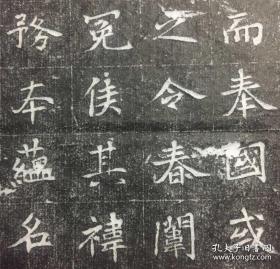 而奉國或
之令春闈
冕侯其禕
務本蘊名
孔夫子旧书网